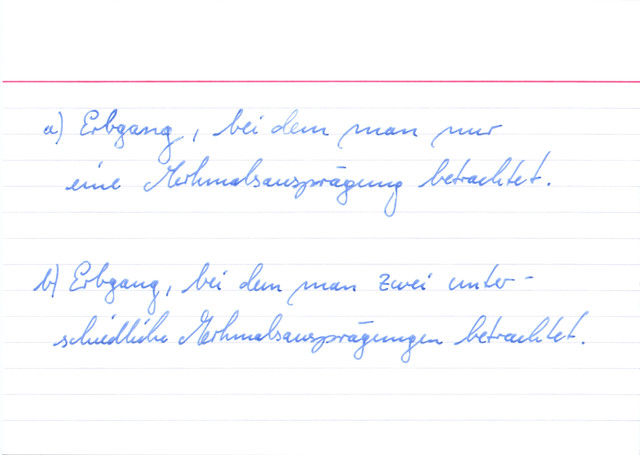 a) Erbgang, bei dem man nur
eine Merkmalsausprägung betrachtet.
b) Erbgang, bei dem man zwei unter-
schiedliche Merkmalsausprägungen betrachtet.